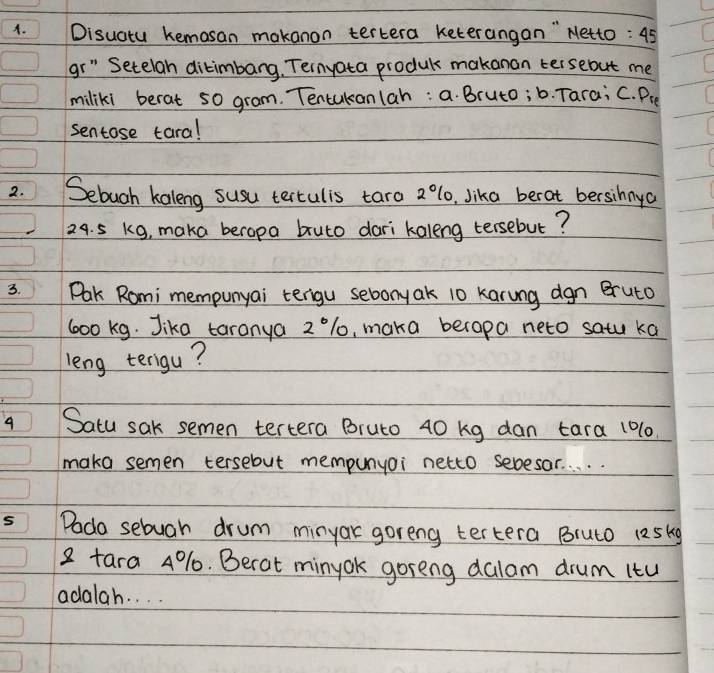 1. Disuatu kemasan makanan tertera keterangan "Netto : 45
gr" Setelah ditimbang, Ternyata produk makanan tersebut me
miliki berat 50 gram. Tentukanlah : a. Bruto ; b. Tara ; C. Pre
sentase tara!
2. Sebuah kaleng susu tertulis tara 2%, Jika berat bersihnya
24.5 kg, maka berapa bruto dari kaleng tersebut?
3. Pak Romi mempunyai terigu sebanyak 10 karung dgn Bruto
600 kg. Jika taranya 2%, maka berapa neto satu ka
leng terigu?
4 Satu sak semen tertera Bruto 40 kg dan tara 1%,
maka semen tersebut mempunyai netto sebesar.....
5 Pada sebuah drum minyak goreng tertera Bruto 125 kg
& tara 4%. Berat minyak goreng dalam drum itu
adalah....